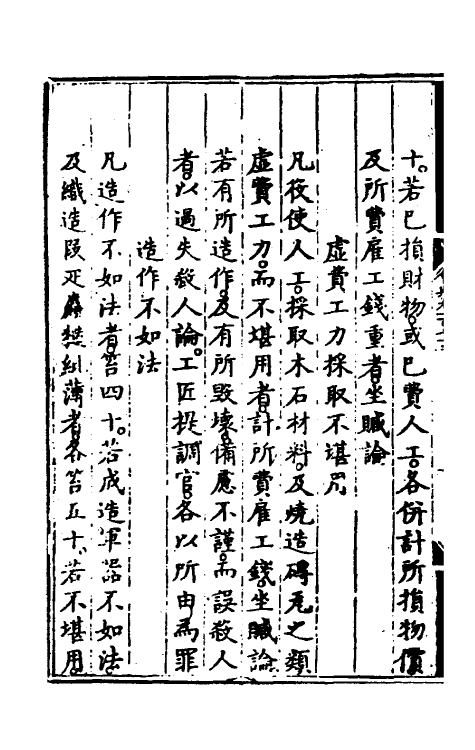 十。若已損財物。或已費人工。各併計所損物價
及所費雇工錢重者。坐贓論
虛費工力採取不堪用
凡役使人工。採取木石材料。及燒造磚瓦之類
虛費工力。而不堪用者。計所費雇工錢。坐贓論
若有所造作。及有所毀壞。備慮不謹。而誤殺人
者。以過失殺人論。工匠提調官。各以所由為罪
造作不如法
凡造作不如法者。笞四十。若成造軍器不如法。
及織造段疋麤糙紕薄者。各笞五十。若不堪用。